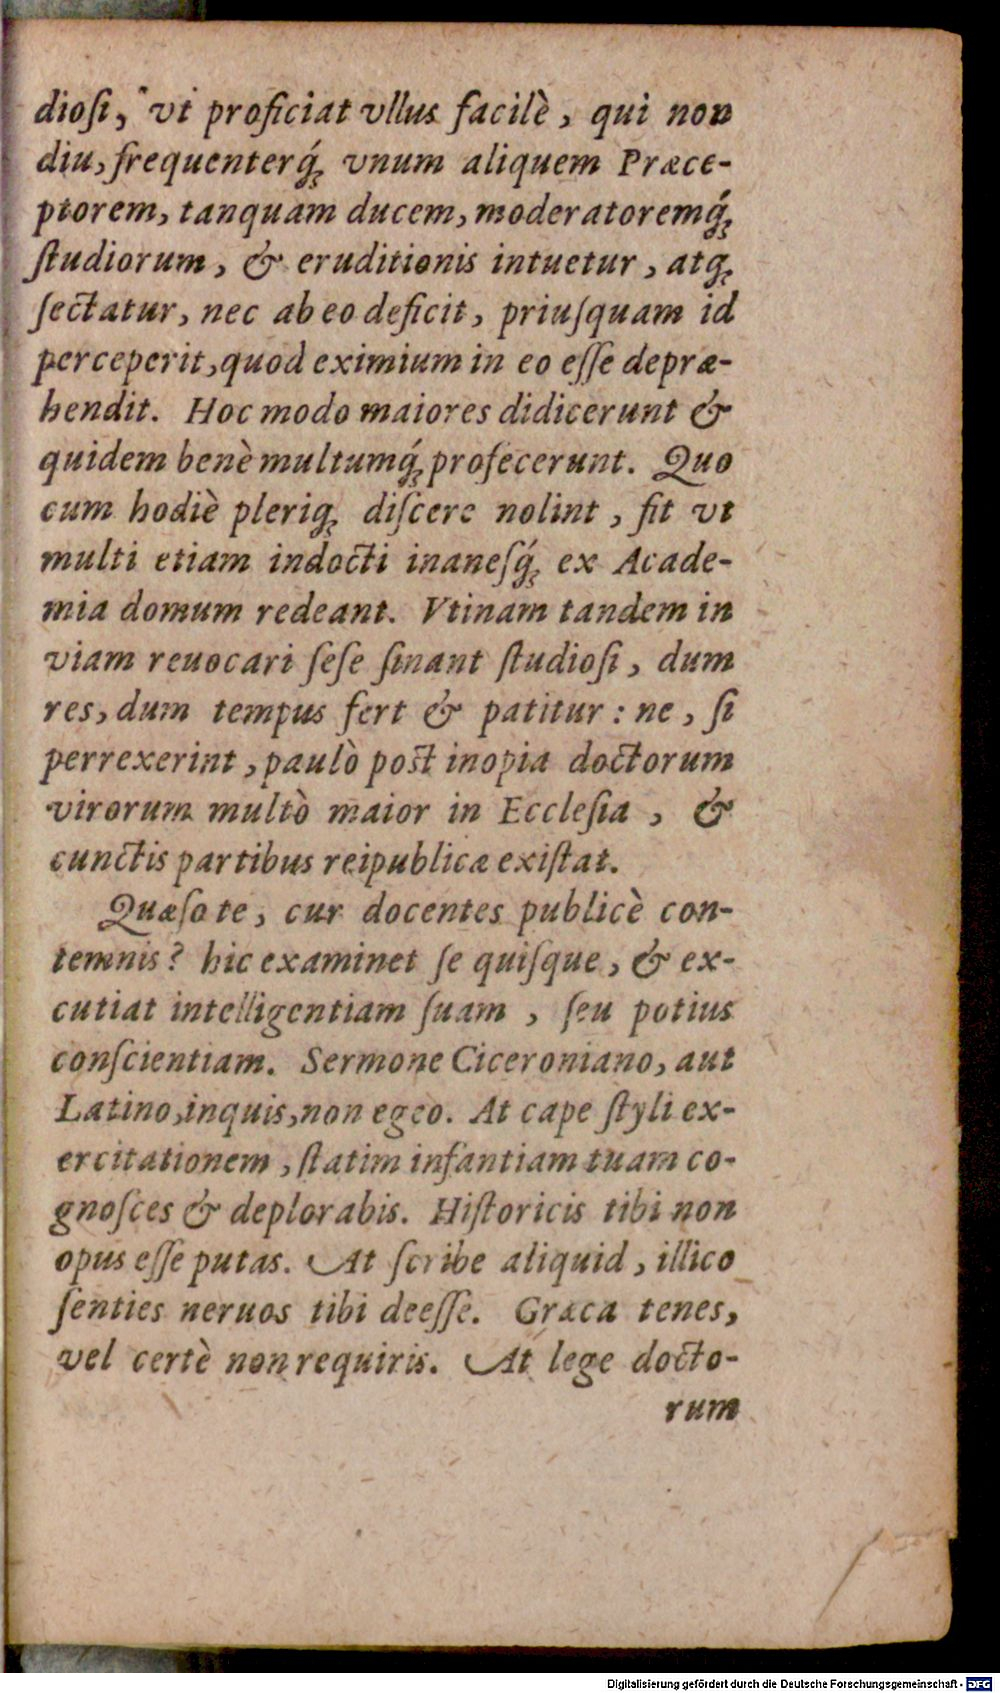 dioſi, vt proficiat vllus facilè, qui non
diu, frequenterq́; vnum aliquem Præce-
ptorem, tanquam ducem, moderatoremq́;
ſtudiorum, & eruditionis intuetur, atq;
ſectatur, nec ab eo deficit, priuſquam id
perceperit, quod eximium in eo eſſe depræ-
hendit. Hoc modo maiores didicerunt &
quidem benè multumq́; profecerunt. Quo
cum hodiè pleriq; diſcere nolint, fit vt
multi etiam indocti inaneſq́; ex Acade-
mia domum redeant. Vtinam tandem in
viam reuocari ſeſe ſinant ſtudioſi, dum
res, dum tempus fert & patitur: ne, ſi
perrexerint, paulò post inopia doctorum
virorum multò maior in Eccleſia, &
cunctis partibus reipublicæ exiſtat.
Quæſo te, cur docentes publicè con-
temnis? hic examinet ſe quiſque, & ex-
cutiat intelligentiam ſuam, ſeu potius
conſcientiam. Sermone Ciceroniano, aut
Latino, inquis, non egeo. At cape ſtyli ex-
ercitationem, ſtatim infantiam tuam co-
gnoſces & deplorabis. Hiſtoricis tibi non
opus eſſe putas. At ſcribe aliquid, illico
ſenties neruos tibi deeſſe. Græca tenes,
vel certè non requiris. At lege docto-
rum
Digitalisierung gefördert durch die Deutsche Forschungsgemeinschaft - DFG